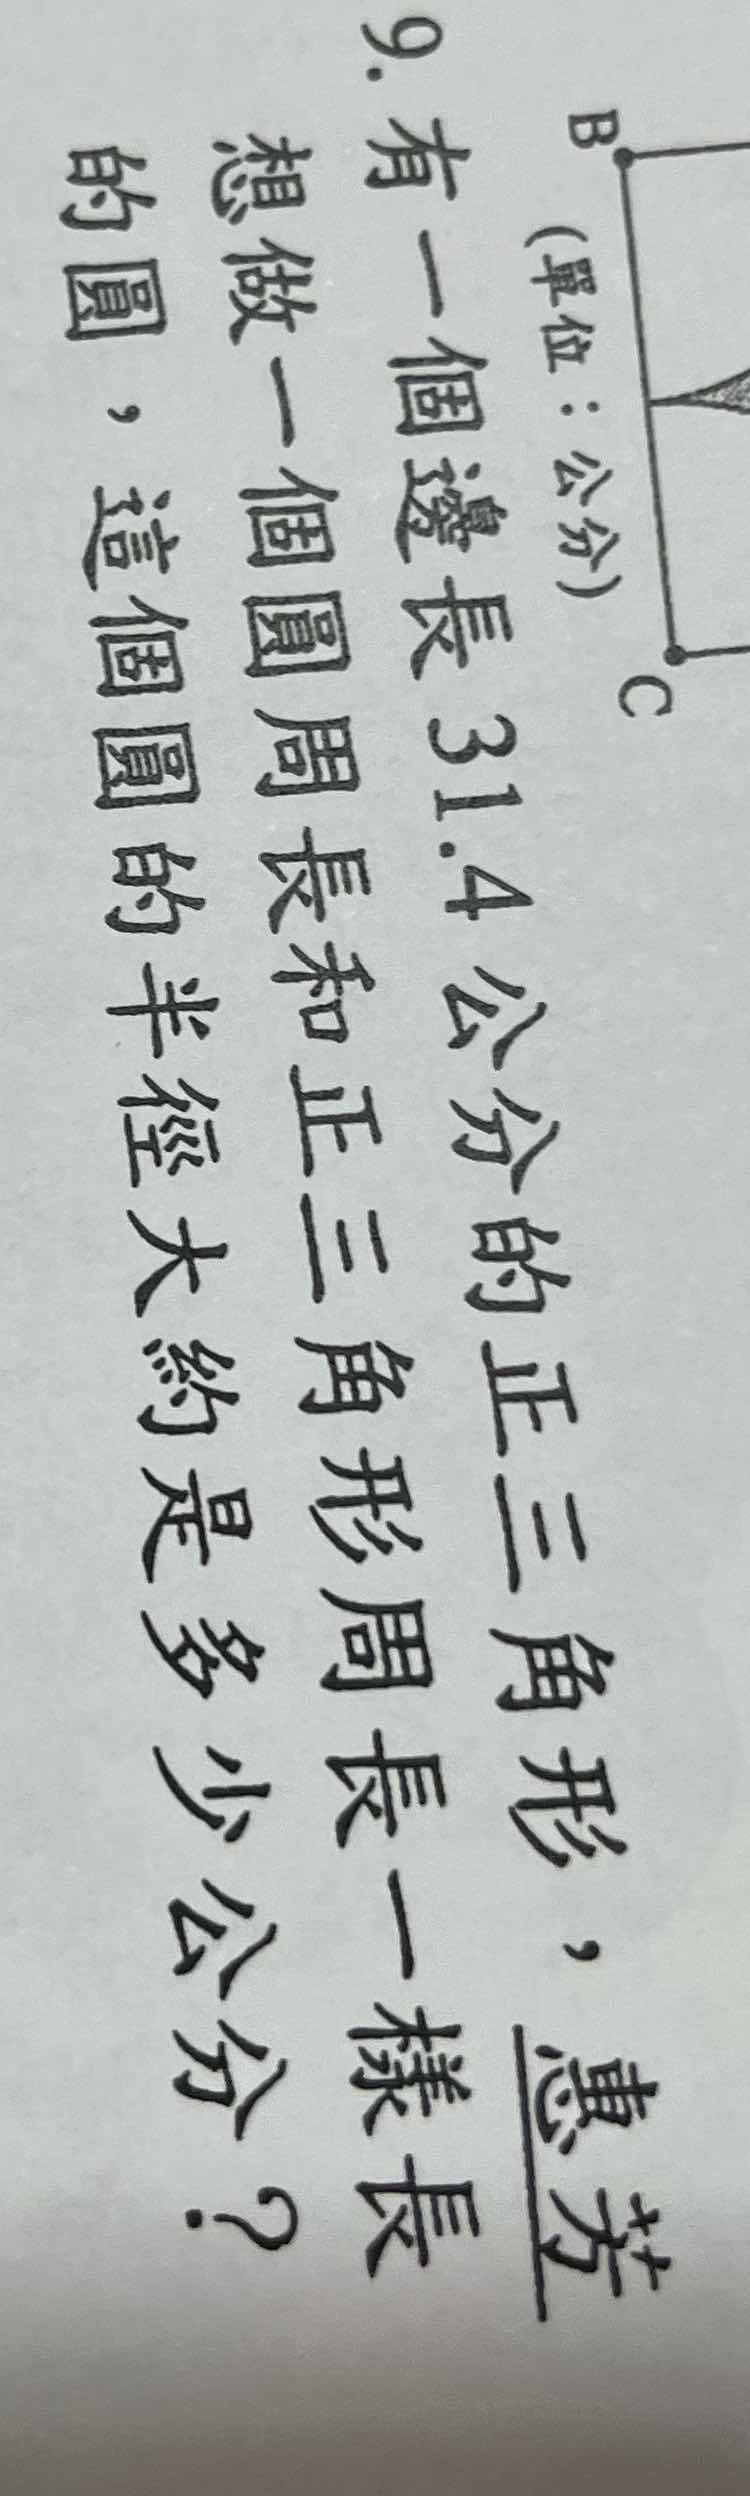 B
C
(單位：公分)
9. 有一個邊長31.4公分的正三角形，惠芳
想做一個圓周長和正三角形周長一樣長
的圓，這個圓的半徑大約是多少公分？